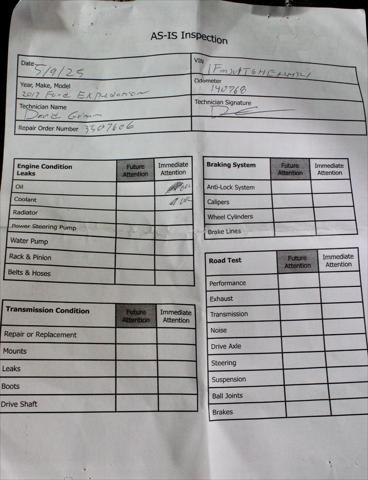 AS-IS Inspection
Date 5/9/25
VIN
Year, Make, Model
2017 Ford Expedition
Odometer
140768
Technician Name
David
Technician Signature
Repair Order Number 3507606
Engine Condition Future Attention Immediate Attention
Leaks
Oil
Coolant
Radiator
Power Steering Pump
Water Pump
Rack & Pinion
Belts & Hoses
Braking System Future Attention Immediate Attention
Anti-Lock System
Calipers
Wheel Cylinders
Brake Lines
Transmission Condition Future Attention Immediate Attention
Repair or Replacement
Mounts
Leaks
Boots
Drive Shaft
Road Test Future Attention Immediate Attention
Performance
Exhaust
Transmission
Noise
Drive Axle
Steering
Suspension
Ball Joints
Brakes